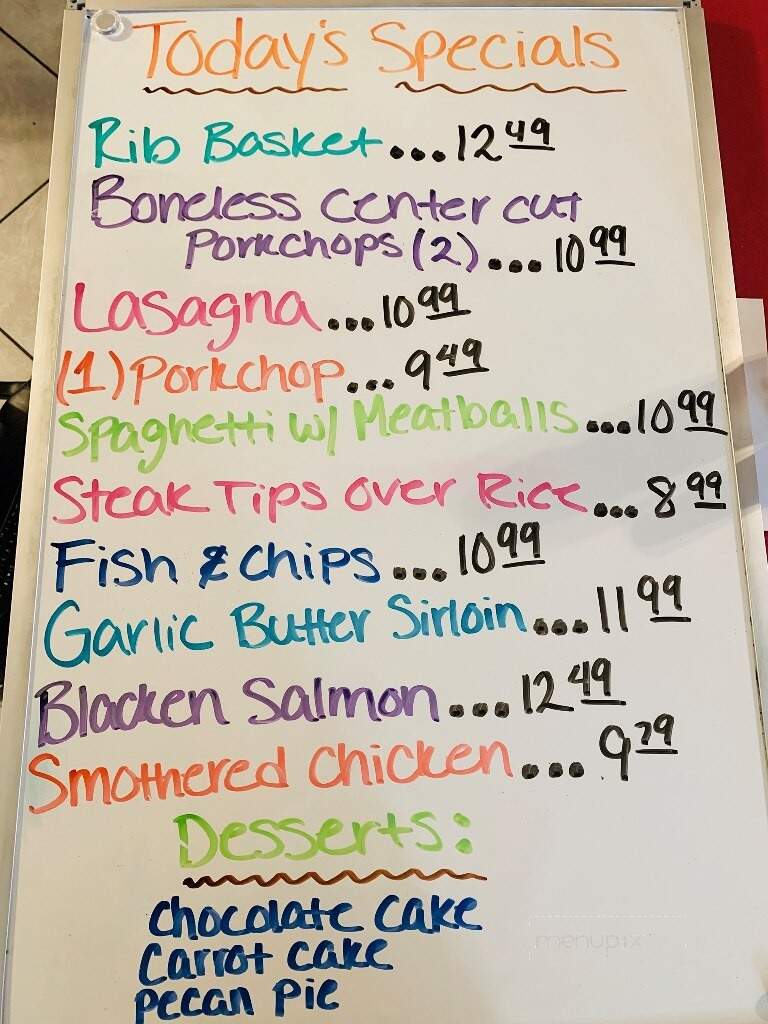 Today's Specials
Rib Basket...12 49
Boneless Center cut
Porkchops (2)...10 99
Lasagna...10 99
(1) Porkchop...9 49
Spaghetti w/ Meatballs...10 99
Steak Tips over Rice...8 99
Fish & Chips...10 99
Garlic Butter Sirloin...11 99
Blacken Salmon...12 49
Smothered Chicken...9 79
Desserts:
Chocolate Cake
Carrot Cake
Pecan Pie
menupix